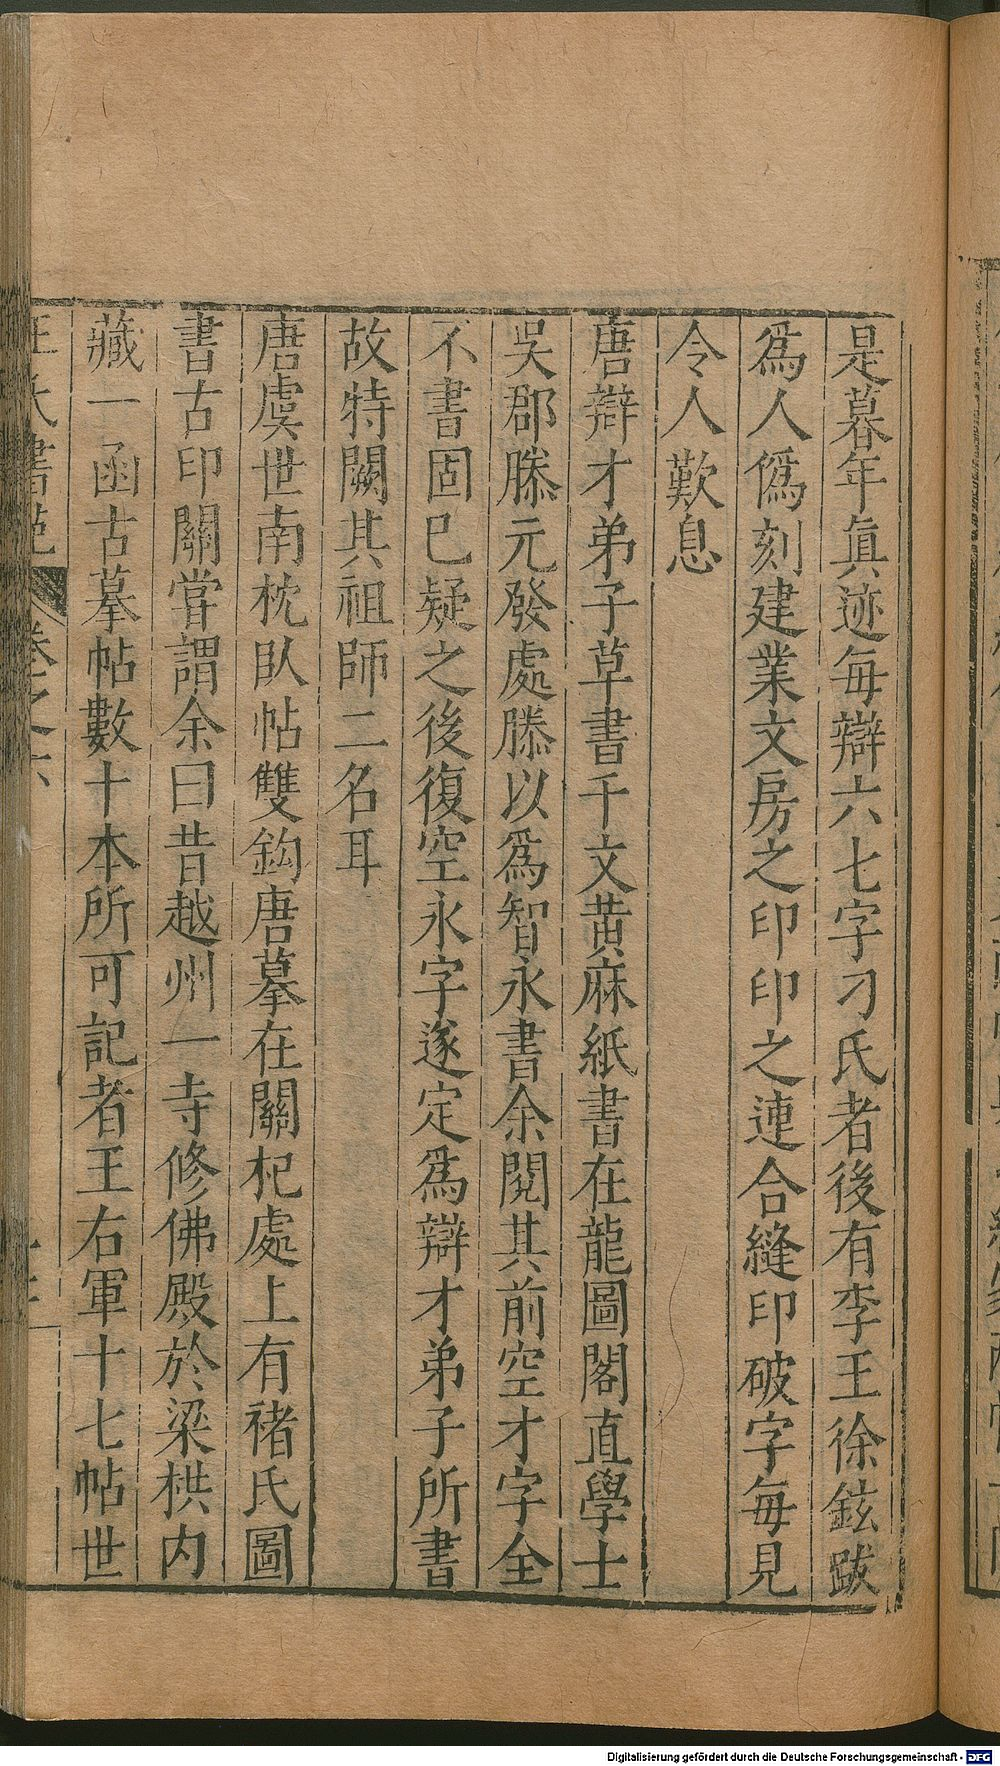 是暮年真迹每辯六七字刁氏者後有李王徐鉉跋
爲人僞刻建業文房之印印之連合縫印破字每見
令人歎息
唐辯才弟子草書千文黄麻紙書在龍圖閣直學士
吳郡滕元發處滕以爲智永書余閱其前空才字全
不書固已疑之後復空永字遂定爲辯才弟子所書
故特闕其祖師二名耳
唐虞世南枕臥帖雙鈎唐摹在關杞處上有褚氏圖
書古印關嘗謂余曰昔越州一寺修佛殿於梁栱内
藏一函古摹帖數十本所可記者王右軍十七帖世
王氏書苑 卷之六
Digitalisierung gefördert durch die Deutsche Forschungsgemeinschaft - DFG